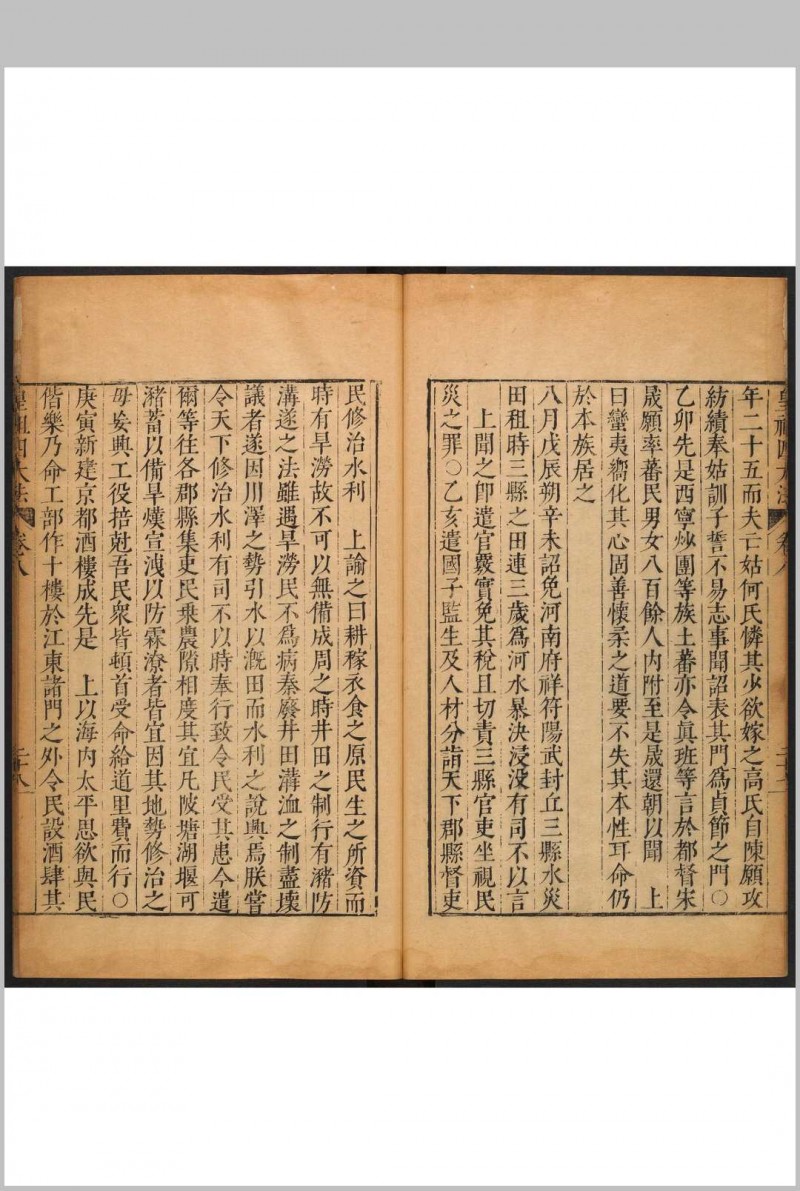 年二十五而夫亡姑何氏憐其少欲嫁之高氏自陳願攻
紡績奉姑訓子誓不易志事聞詔表其門爲貞節之門〇
乙卯先是西寧炒團等族土蕃亦令眞班等言於都督宋
晟願率蕃民男女八百餘人內附至是晟還朝以聞　上
曰蠻夷嚮化其心固善懷柔之道要不失其本性耳命仍
於本族居之
八月戊辰朔辛未詔免河南府祥符陽武封丘三縣水災
田租時三縣之田連三歲爲河水暴決浸没有司不以言
上聞之卽遣官覈實免其稅且切責三縣官吏坐視民
災之罪〇乙亥遣國子監生及人材分詣天下郡縣督吏
民修治水利　上諭之曰耕稼衣食之原民生之所資而
時有旱澇故不可以無備成周之時井田之制行有瀦防
溝遂之法雖遇旱澇民不爲病秦廢井田溝洫之制盡壞
議者遂因川澤之勢引水以漑田而水利之說興焉朕嘗
令天下修治水利有司不以時奉行致令民受其患今遣
爾等往各郡縣集吏民乘農隙相度其宜凡陂塘湖堰可
瀦蓄以備旱熯宣洩以防霖潦者皆宜因其地勢修治之
毋妄興工役掊尅吾民衆皆頓首受命給道里費而行〇
庚寅新建京都酒樓成先是　上以海內太平思欲與民
偕樂乃命工部作十樓於江東諸門之外令民設酒肆其
皇祖四大法
卷八
二十八